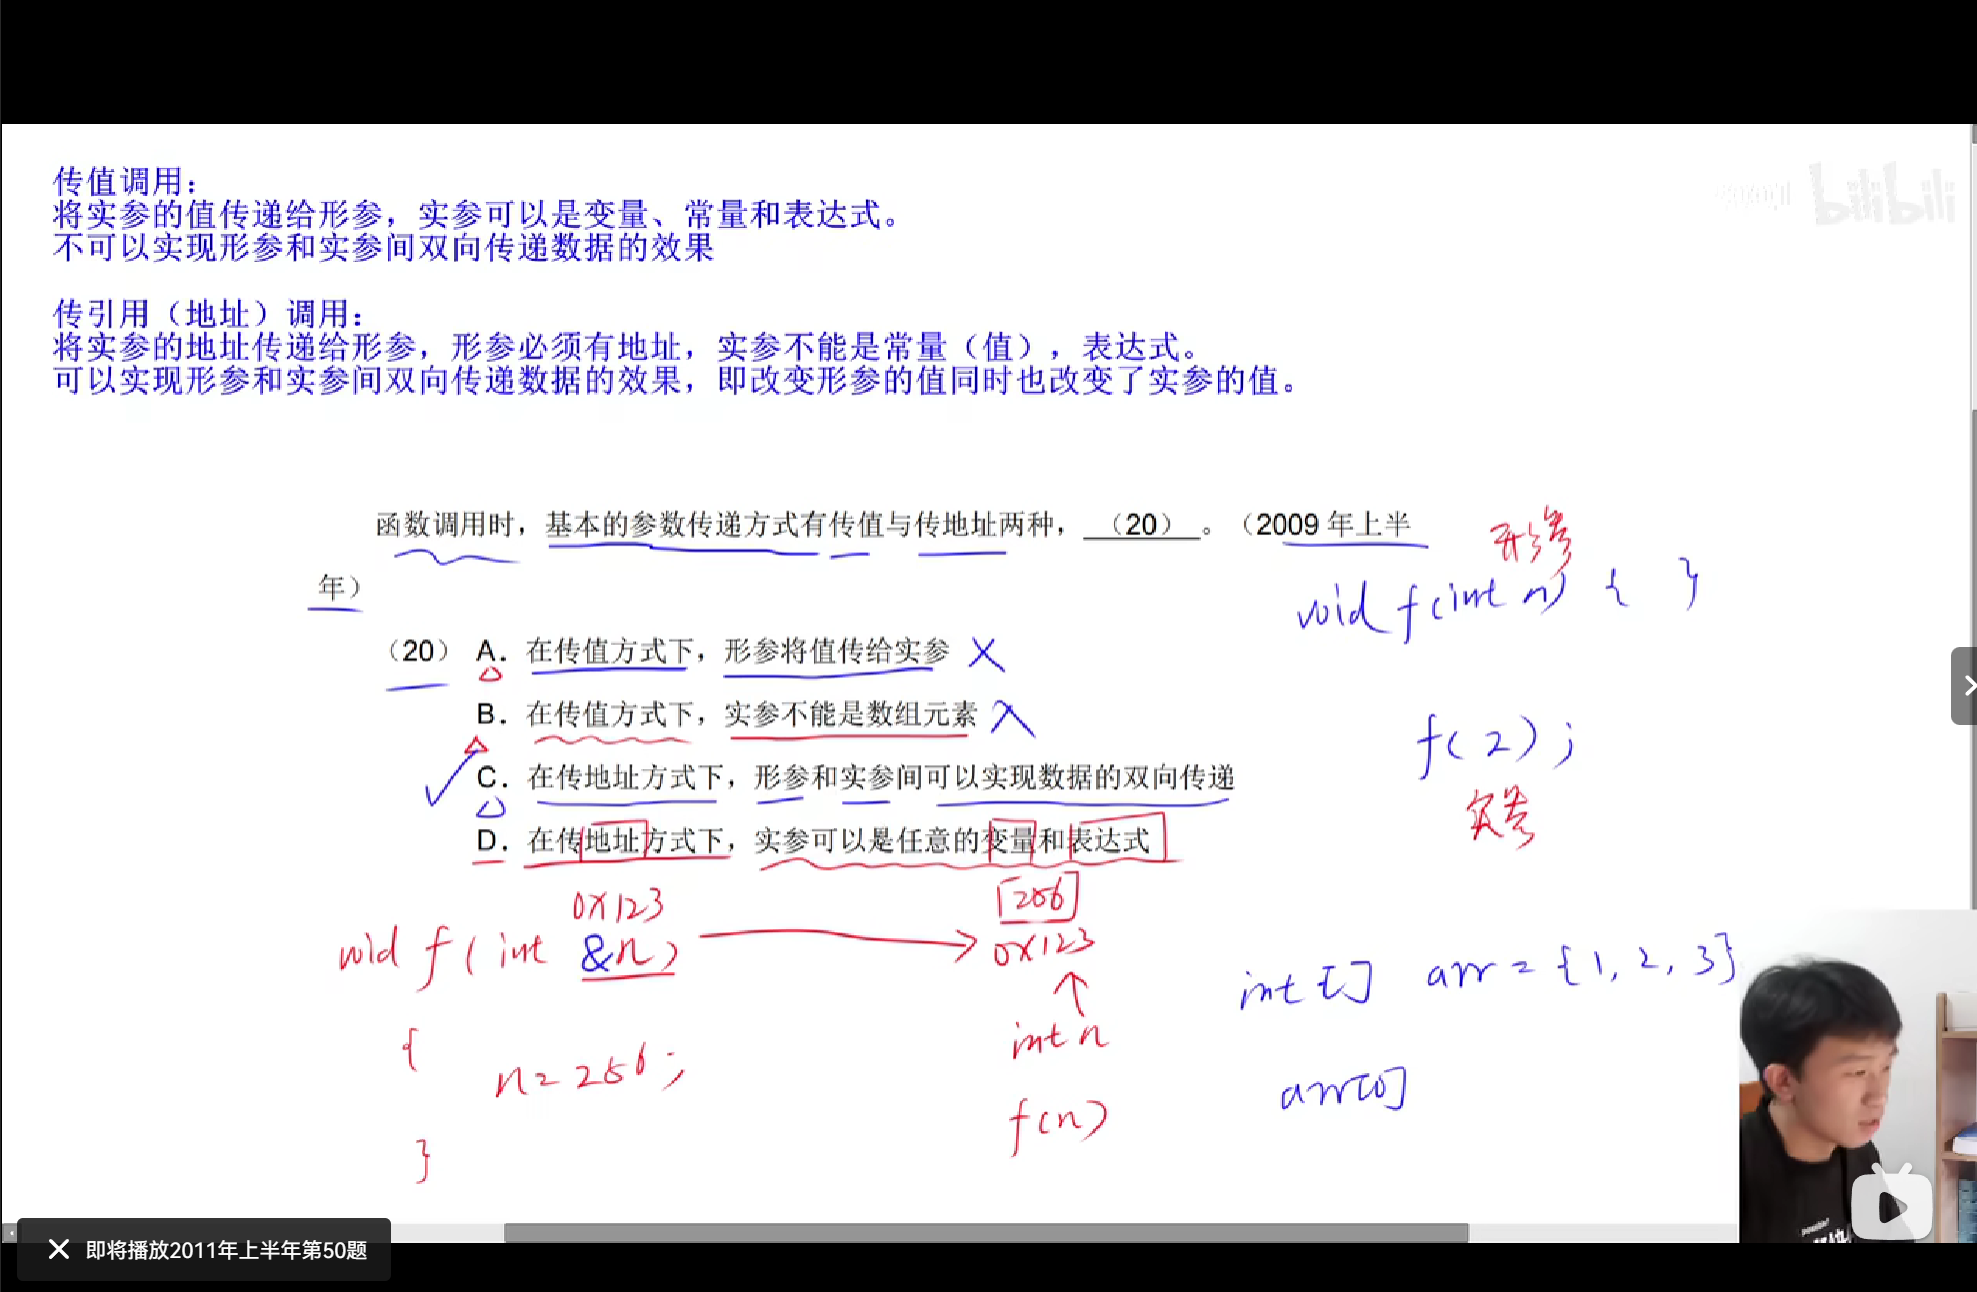 传值调用：
将实参的值传递给形参，实参可以是变量、常量和表达式。
不可以实现形参和实参间双向传递数据的效果
传引用（地址）调用：
将实参的地址传递给形参，形参必须有地址，实参不能是常量（值），表达式。
可以实现形参和实参间双向传递数据的效果，即改变形参的值同时也改变了实参的值。
bilibili
函数调用时，基本的参数传递方式有传值与传地址两种，（20）。（2009 年上半
年）
形参
void f(int n) { }
（20） A. 在传值方式下，形参将值传给实参
B. 在传值方式下，实参不能是数组元素
C. 在传地址方式下，形参和实参间可以实现数据的双向传递
D. 在传地址方式下，实参可以是任意的变量和表达式
f(2);
实参
0x123
256
void f(int &n)
0x123
{
n=256;
}
int n
f(n)
int [] arr = {1, 2, 3}
arr[0]
即将播放2011年上半年第50题